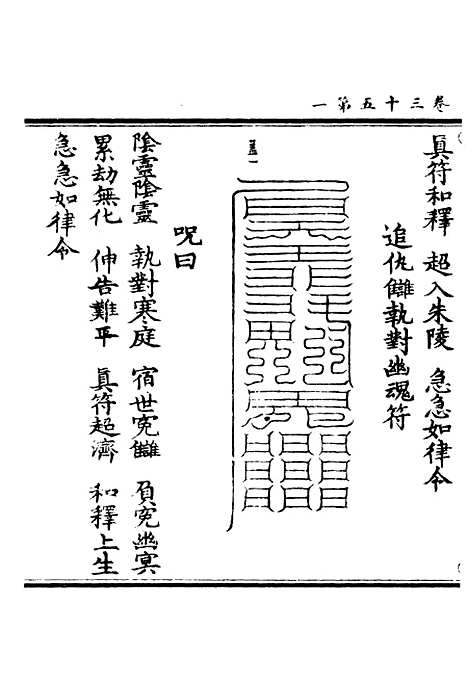 卷三十五第一
真符和釋　超入朱陵　急急如律令
追仇讎執對幽魂符
咒曰
陰靈陰靈　執對寒庭　宿世冤讎　負冤幽冥
累劫無化　伸告難平　真符超濟　和釋上生
急急如律令